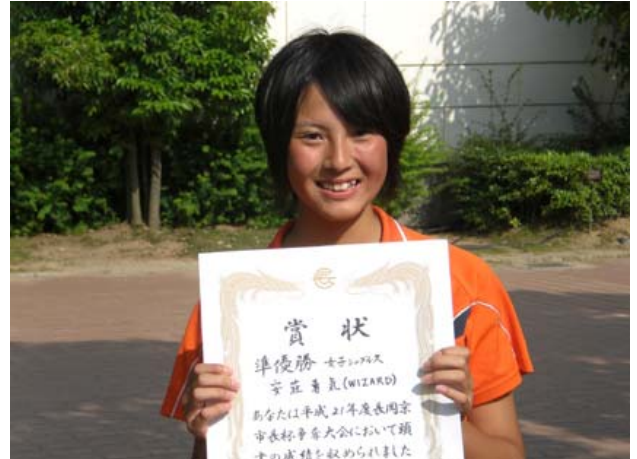 賞状
準優勝 女子シングルス
安荘勇気(WIZARD)
あなたは平成21年度長岡京
市長杯争奪大会において頭
書の成績を収められました